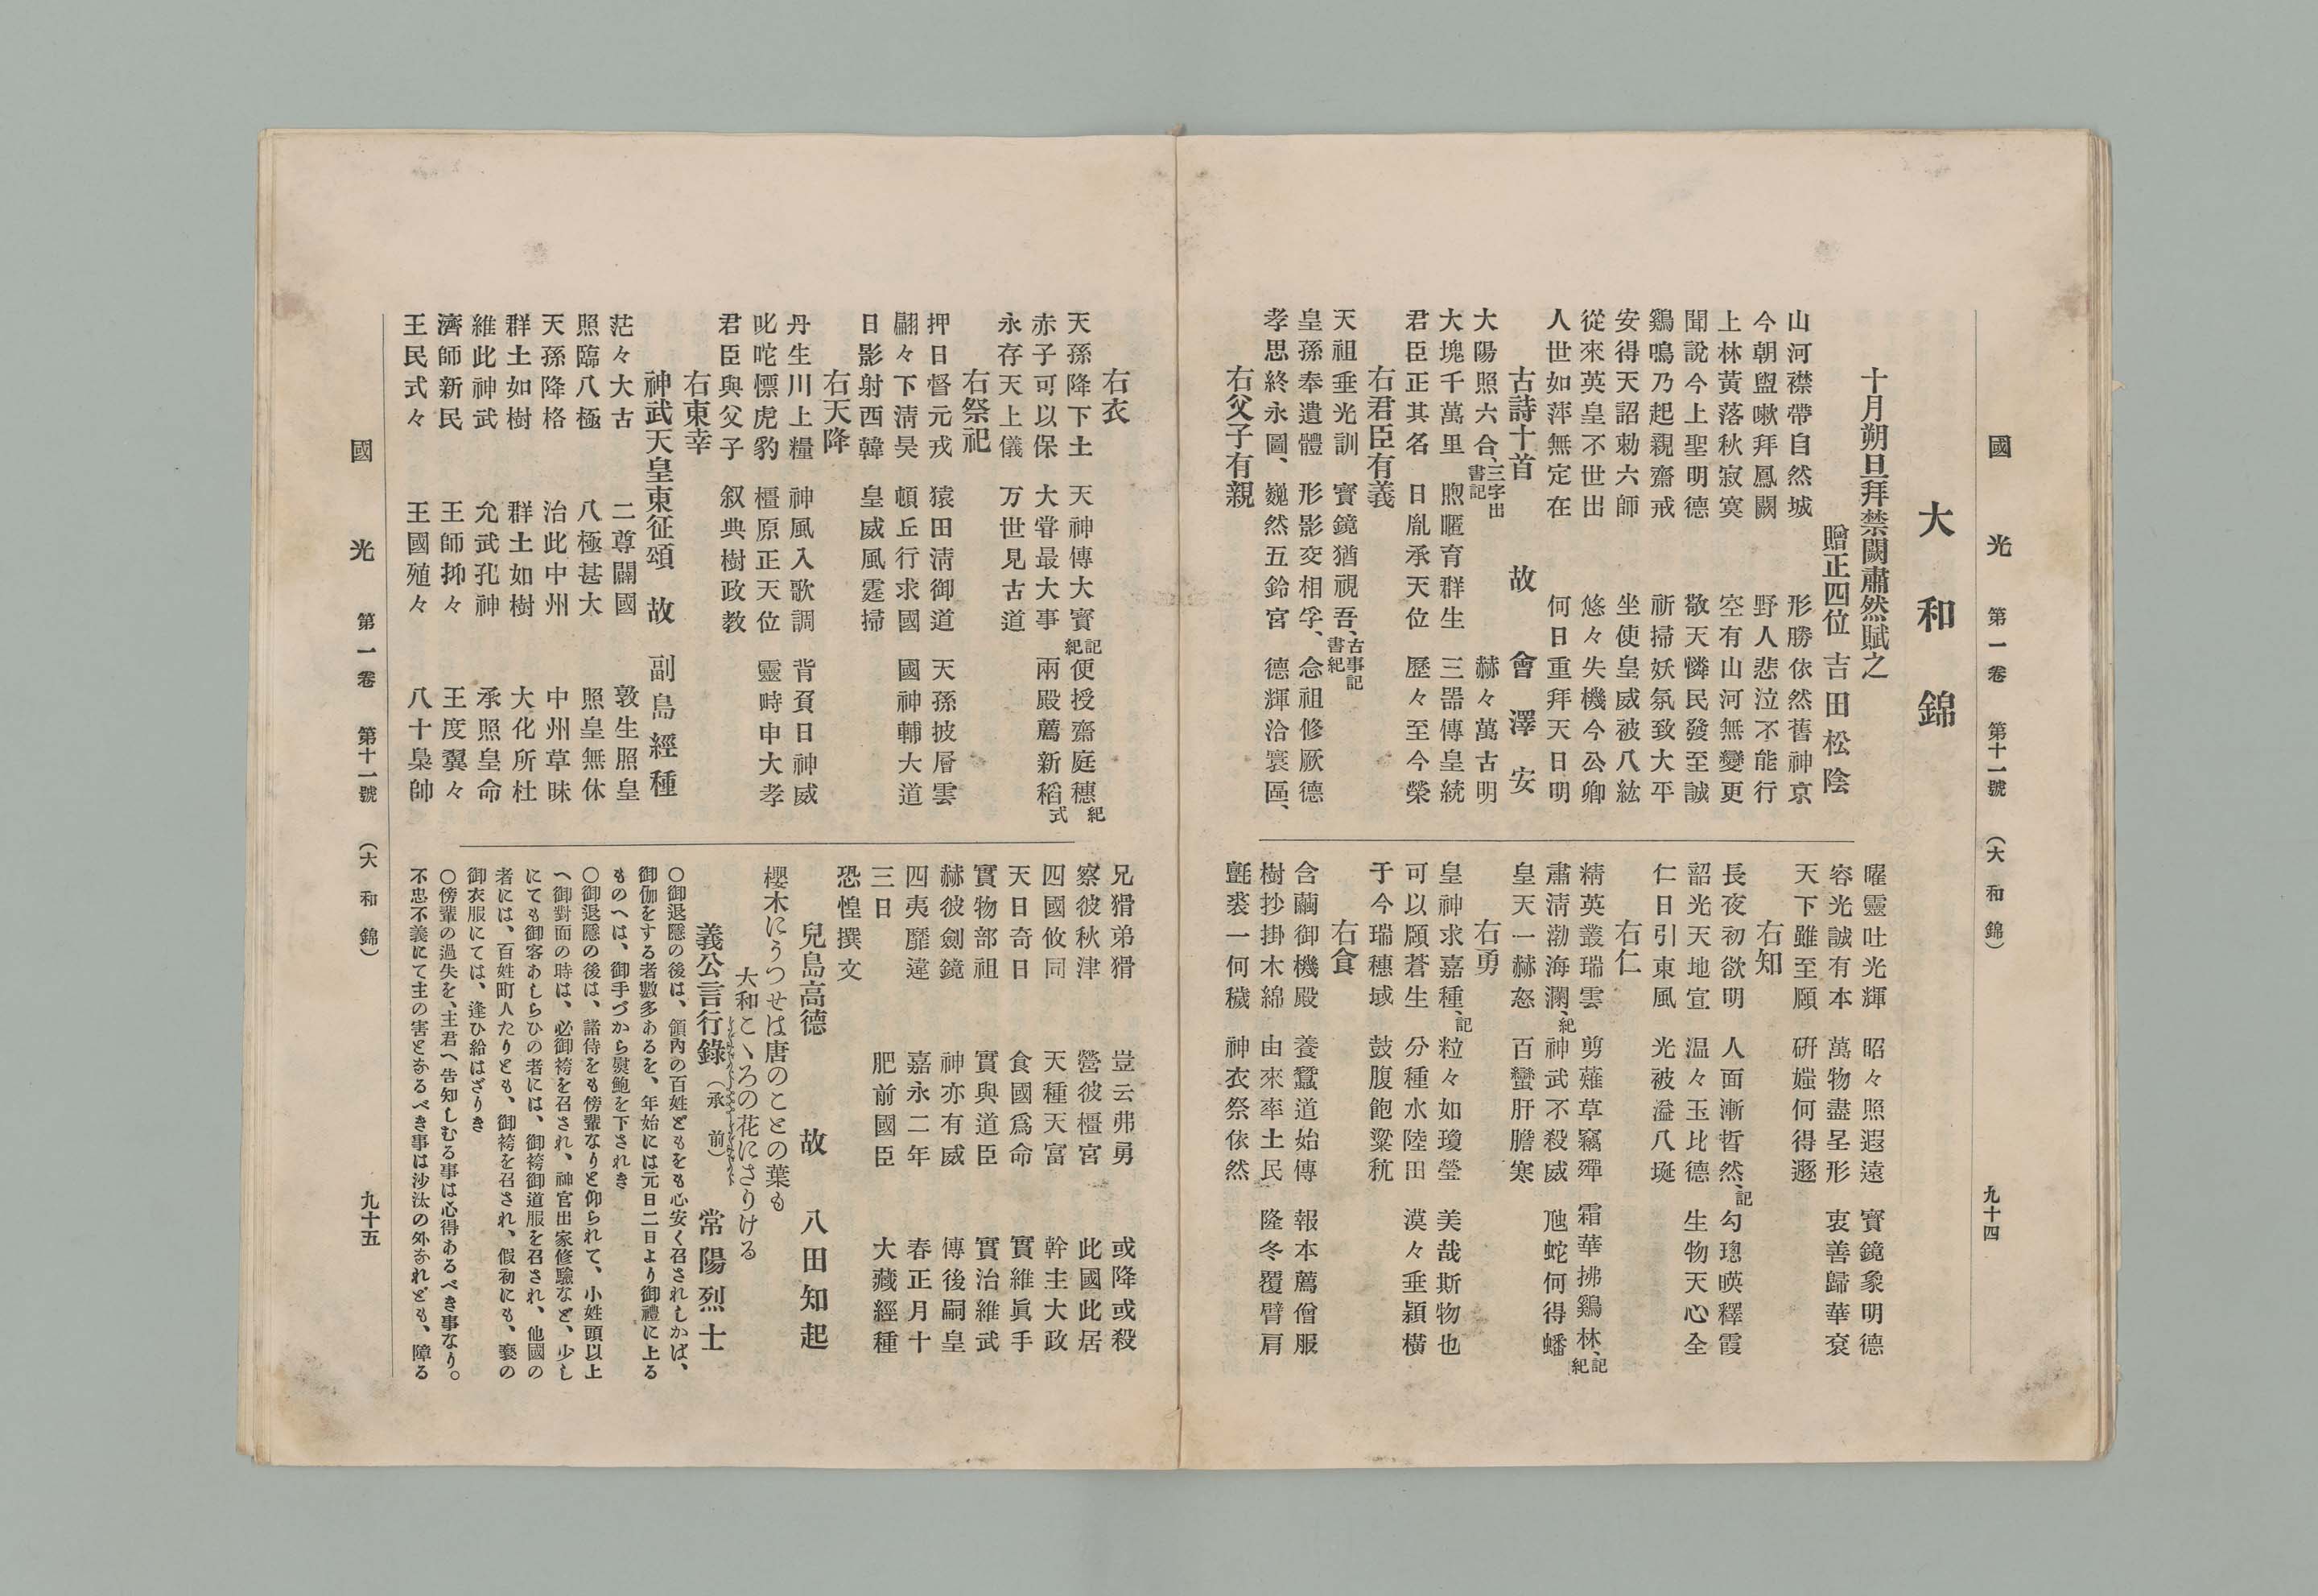 國光 第一卷 第十一號 (大和錦) 九十四
大和錦
十月朔旦拜禁闕肅然賦之
贈正四位 吉田松陰
山河襟帶自然城 形勝依然舊神京
今朝盥嗽拜鳳闕 野人悲泣不能行
上林黃落秋寂寞 空有山河無變更
聞說今上聖明德 敬天憐民發至誠
鷄鳴乃起親齋戒 祈掃妖氛致大平
安得天詔勅六師 坐使皇威被八紘
從來英皇不世出 悠々失機今公卿
人世如萍無定在 何日重拜天日明
古詩十首 故 會澤安
大陽照六合、三字出書記 赫々萬古明
大塊千萬里 煦暱育群生 三器傳皇統
君臣正其名 日胤承天位 歷々至今榮
右君臣有義
天祖垂光訓 寶鏡猶視吾、古事記書紀
皇孫奉遺體 形影交相孚、念祖修厥德
孝思終永圖、巍然五鈴宮 德輝洽寰區、
右父子有親
曜靈吐光輝 昭々照遐遠 寶鏡象明德
容光誠有本 萬物盡呈形 衷善歸華袞
天下雖至願 硏媸何得遯
右知
長夜初欲明 人面漸晳然、記 勾璁暎釋霞
韶光天地宣 温々玉比德 生物天心全
仁日引東風 光被溢八埏
右仁
精英叢瑞雲 剪薙草竊殫 霜華拂鷄林、記紀
肅淸渤海瀾、紀 神武不殺威 虺蛇何得蟠
皇天一赫怒 百蠻肝膽寒
右勇
皇神求嘉種、記 粒々如瓊瑩 美哉斯物也
可以願蒼生 分種水陸田 漠々垂穎橫
于今瑞穗域 鼓腹飽粱秔
右食
含繭御機殿 養蠶道始傳 報本薦僧服
樹抄掛木綿 由來率土民 隆冬覆臂肩
氈裘一何穢 神衣祭依然
右衣
天孫降下土 天神傳大寶記紀 便授齋庭穗紀
赤子可以保 大甞最大事 兩殿薦新稻式
永存天上儀 万世見古道
右祭祀
押日督元戎 猿田淸御道 天孫披層雲
翩々下淸昊 頓丘行求國 國神輔大道
日影射西韓 皇威風霆掃
右天降
丹生川上糧 神風入歌調 背負日神威
叱咜慓虎豹 橿原正天位 靈畤申大孝
君臣與父子 叙典樹政教
右東幸
神武天皇東征頌 故 副島經種
茫々大古 二尊闢國 敦生照皇
照臨八極 八極甚大 照皇無休
天孫降格 治此中州 中州草昧
群土如樹 群土如樹 大化所杜
維此神武 允武孔神 承照皇命
濟師新民 王師抑々 王度翼々
王民式々 王國殖々 八十梟帥
兄猾弟猾 豈云弗勇 或降或殺
察彼秋津 營彼橿宮 此國此居
四國攸同 天種天富 幹主大政
天日奇日 食國爲命 實維眞手
實物部祖 實與道臣 實治維武
赫彼劍鏡 神亦有威 傳後嗣皇
四夷靡違 嘉永二年 春正月十
三日 肥前國臣 大藏經種
恐惶撰文
兒島高德 故 八田知起
櫻木にうつせは唐のことの葉も
大和こゝろの花にさりける
義公言行錄 (承前) 常陽烈士
〇御退隱の後は、領內の百姓どもをも心安く召されしかば、
御伽をする者數多あるを、年始には元日二日より御禮に上る
ものへは、御手づから熨鮑を下されき
〇御退隱の後は、諸侍をも傍輩なりと仰られて、小姓頭以上
へ御對面の時は、必御袴を召され、神官出家修驗など、少し
にても御客あしらひの者には、御袴御道服を召され、他國の
者には、百姓町人たりとも、御袴を召され、假初にも、褻の
御衣服にては、逢ひ給はざりき
〇傍輩の過失を、主君へ告知しむる事は心得あるべき事なり。
不忠不義にて主の害となるべき事は沙汰の外なれども、障る
國光 第一卷 第十一號 (大和錦) 九十五